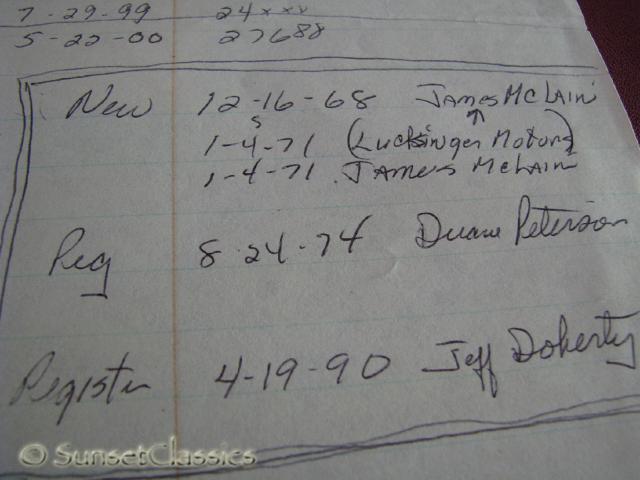 7-29-99 24xxxx
5-22-00 27688
New 12-16-68 James McLain
1-4-71 (Lucksinger Motors)
s
1-4-71 James McLain
Reg 8-24-74 Duane Peterson
Register 4-19-90 Jeff Doherty
© SunsetClassics